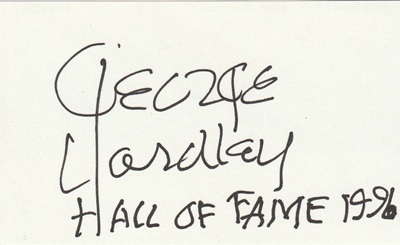 George
Yardley
HALL OF FAME 1996